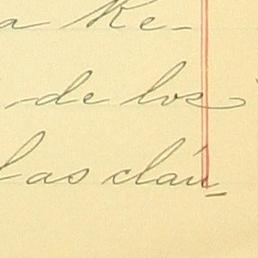 a Re-
de los
las cláu-